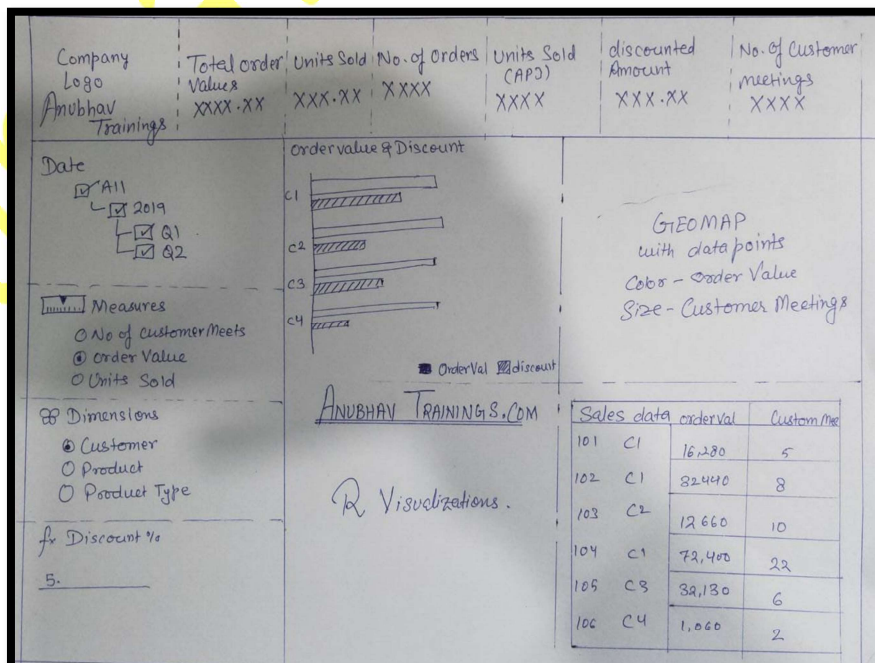 Company
Logo
Anubhav
Trainings
Total order
Values
XXXX.XX
Units Sold
XXX.XX
No. of Orders
XXXX
Units Sold
(APJ)
XXXX
discounted
Amount
XXX.XX
No. of Customer
meetings
XXXX
Date
All
2019
Q1
Q2
Measures
No of customer Meets
Order Value
Units Sold
Dimensions
Customer
Product
Product Type
fx Discount %
5.
Order value & Discount
C1
C2
C3
C4
OrderVal discount
ANUBHAV TRAININGS.COM
R Visualizations.
GEOMAP
with data points
Color - Order Value
Size - Customer Meetings
Sales data orderval Custom Mee
101 C1 16,280 5
102 C1 32440 8
103 C2 12660 10
104 C1 72,400 22
105 C3 32,130 6
106 C4 1,060 2